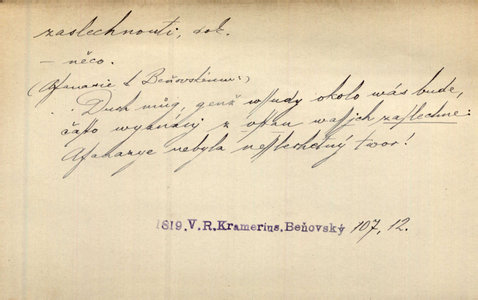 zaslechnouti, dok.
– něco.
(Afanasie k Beňovskému:)
Duch můg, genž wssudy okolo wás bude,
často wyznánj z vst wassich zaslechne:
Afanazye nebyla nesslechetný twor!
1819. V. R. Kramerius. Beňovský 107, 12.